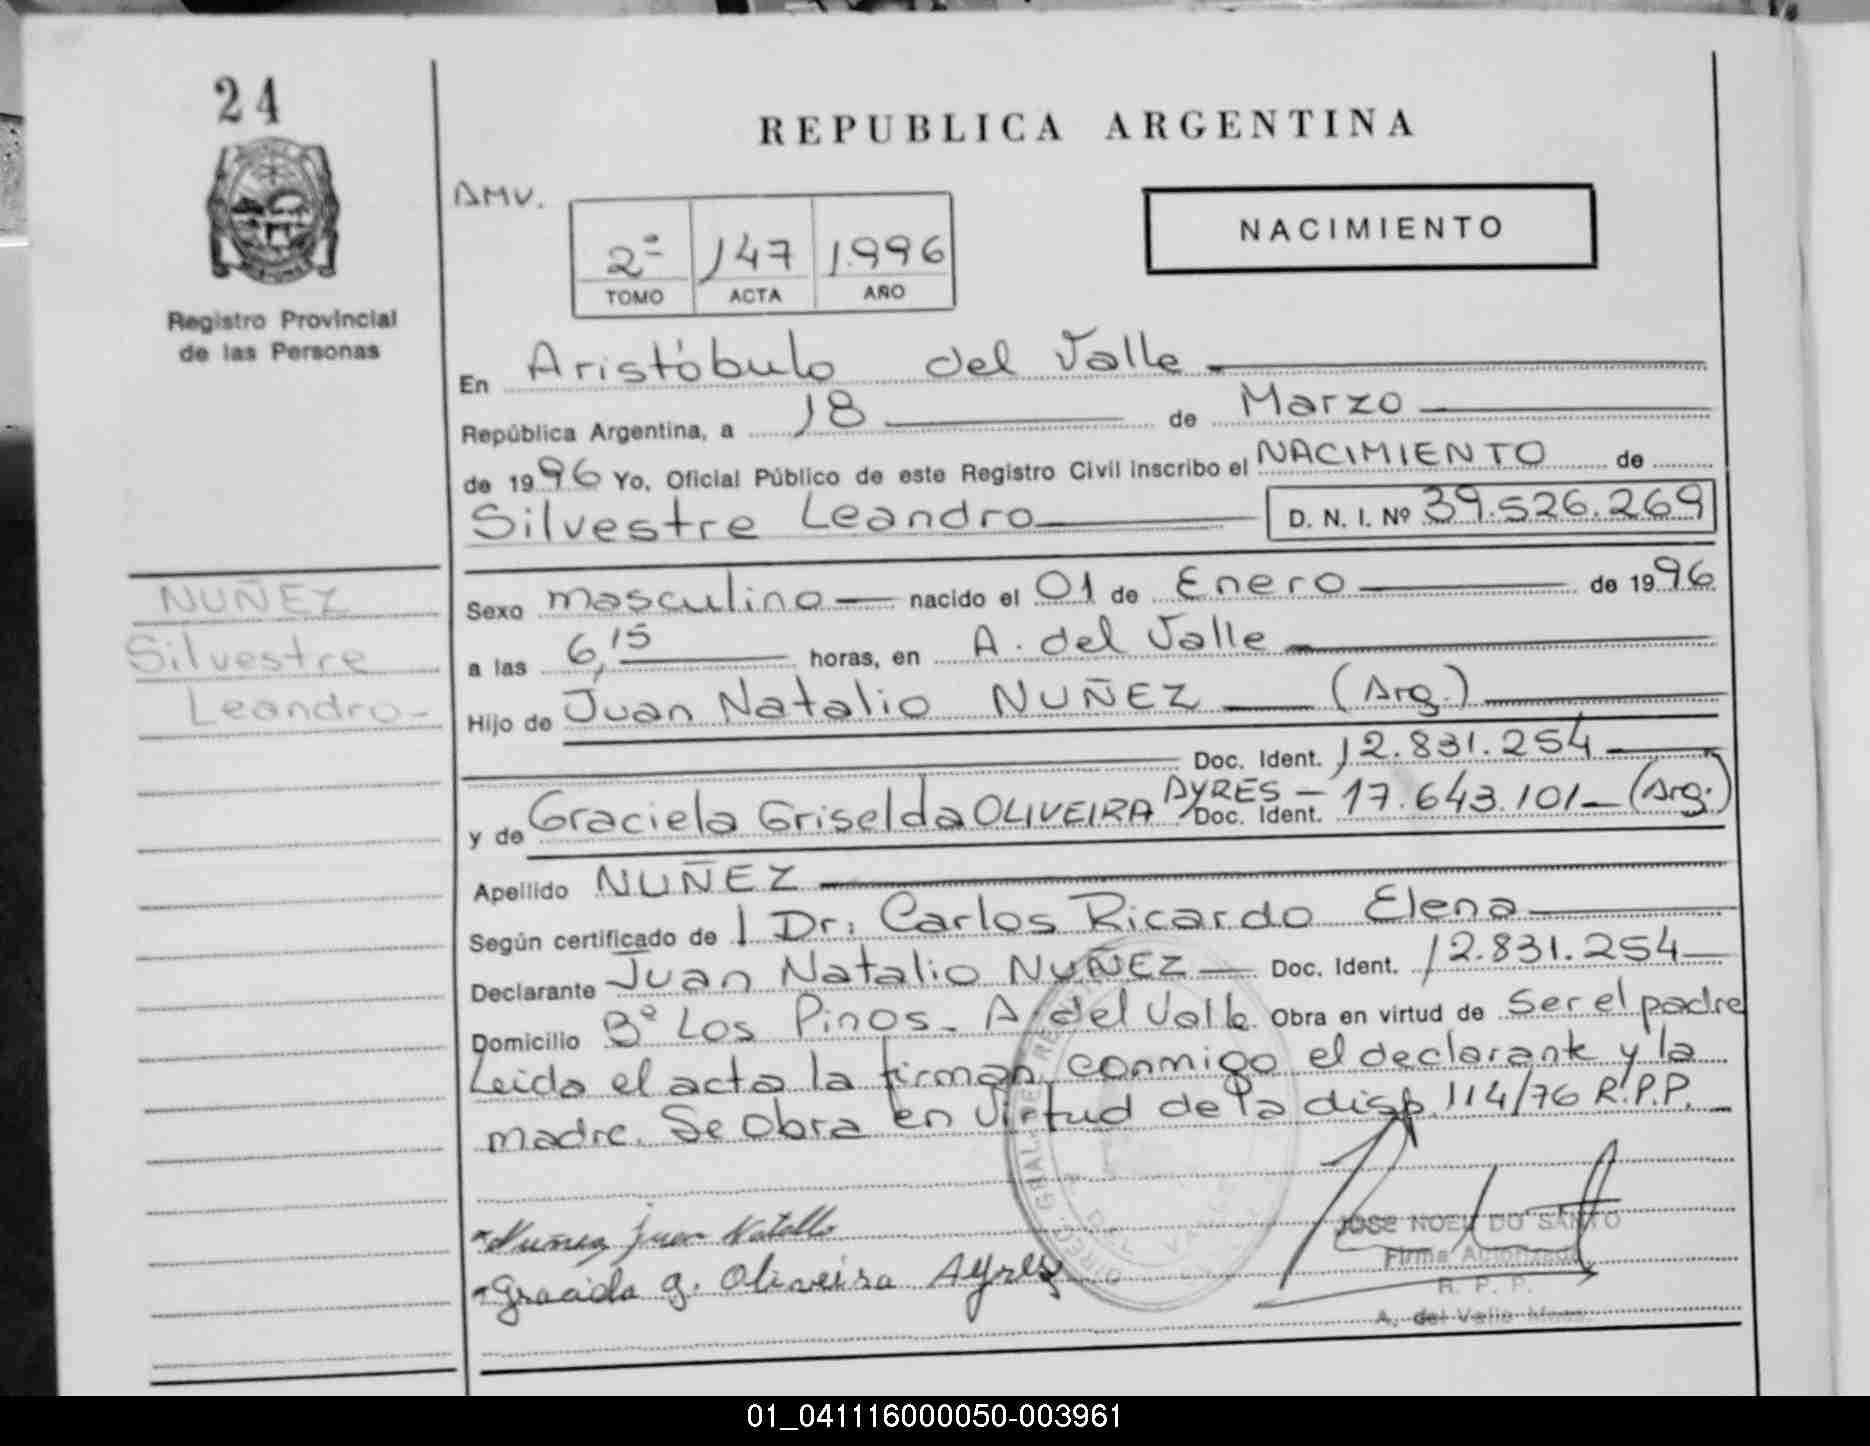 24
REPUBLICA ARGENTINA
AMV.
2º 147 1.996
TOMO ACTA AÑO
NACIMIENTO
Registro Provincial
de las Personas
En Aristóbulo del Valle
República Argentina, a 18 de Marzo
de 1996 Yo, Oficial Público de este Registro Civil inscribo el NACIMIENTO de
Silvestre Leandro D. N. I. Nº 39.526.269
NUÑEZ
Silvestre
Leandro-
Sexo masculino nacido el 01 de Enero de 1996
a las 6,15 horas, en A. del Valle
Hijo de Juan Natalio NUÑEZ (Arg.)
Doc. Ident. 12.831.254
y de Graciela Griselda OLIVEIRA AYRES - Doc. Ident. 17.643.101 (Arg.)
Apellido NUÑEZ
Según certificado de Dr: Carlos Ricardo Elena
Declarante Juan Natalio NUÑEZ Doc. Ident. 12.831.254
Domicilio Bº Los Pinos. A. del Valle Obra en virtud de Ser el padre
Leida el acta la firman conmigo el declarante y la
madre. Se obra en virtud de la disp. 114/76 R.P.P.
Nuñez Juan Natalio
Graciela G. Oliveira Ayres
JOSE NOEL DO SANTO
Firma Autorizada
R. P. P.
A. del Valle Mnes.
01_041116000050-003961